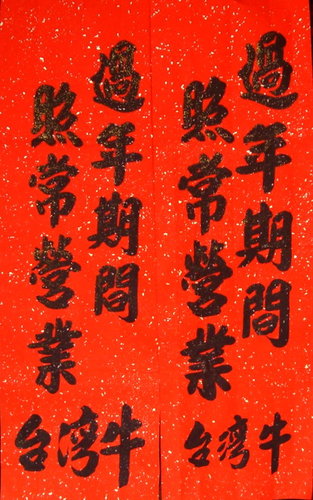 過年期間
照常營業
台灣牛
過年期間
照常營業
台灣牛